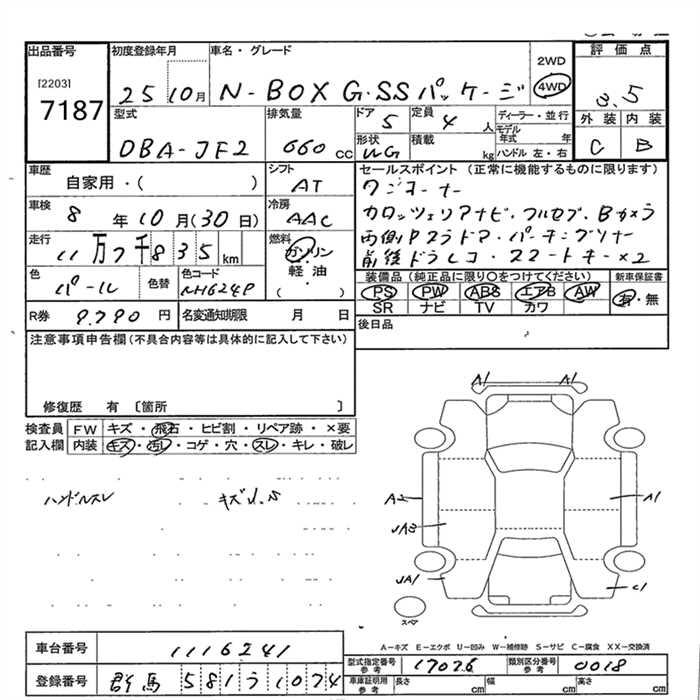 出品番号 初度登録年月 車名・グレード 評価点
[2203] 7187
25 10月 N-BOX G・SSパッケージ 2WD 4WD 3.5
型式 排気量 ドア 定員 ディーラー・並行 外装 内装
DBA-JF2 660cc 5 4人 モデル年式 年 C B
形状 積載 kg ハンドル 左・右
WG
車歴 シフト セールスポイント (正常に機能するものに限ります)
自家用・( ) AT ワンオーナー
車検 冷房 カロッツェリアナビ・フルセグ・Bカメラ
8年10月(30日) AAC 両側Pスラドア・パーキングソナー
走行 燃料 前後ドラレコ・スマートキー×2
11万7千835km ガソリン
軽・油
( )
色 色替 色コード 装備品 (純正品に限り○をつけてください) 新車保証書
パール NH624P PS PW ABS エアB AW 有・無
SR ナビ TV カワ
R券 9.790円 名変通知期限 月 日 後日品
注意事項申告欄(不具合内容等は具体的に記入して下さい)
修復歴 有 〔箇所 〕
検査員 FW キズ・飛石・ヒビ割・リペア跡・×要
記入欄 内装 キズ・汚レ・コゲ・穴・スレ・キレ・破レ
ハンドルスレ
A1 A1
A2 A1
JA1 C1
スペア
A-キズ E-エクボ U-凹み W-補修跡 S-サビ C-腐食 XX-交換済
車台番号 1116241
型式指定番号 参考 17026 類別区分番号 参考 0018
登録番号 群馬 581 う 1074
車庫証明用 参考 長さ cm 幅 cm 高さ cm